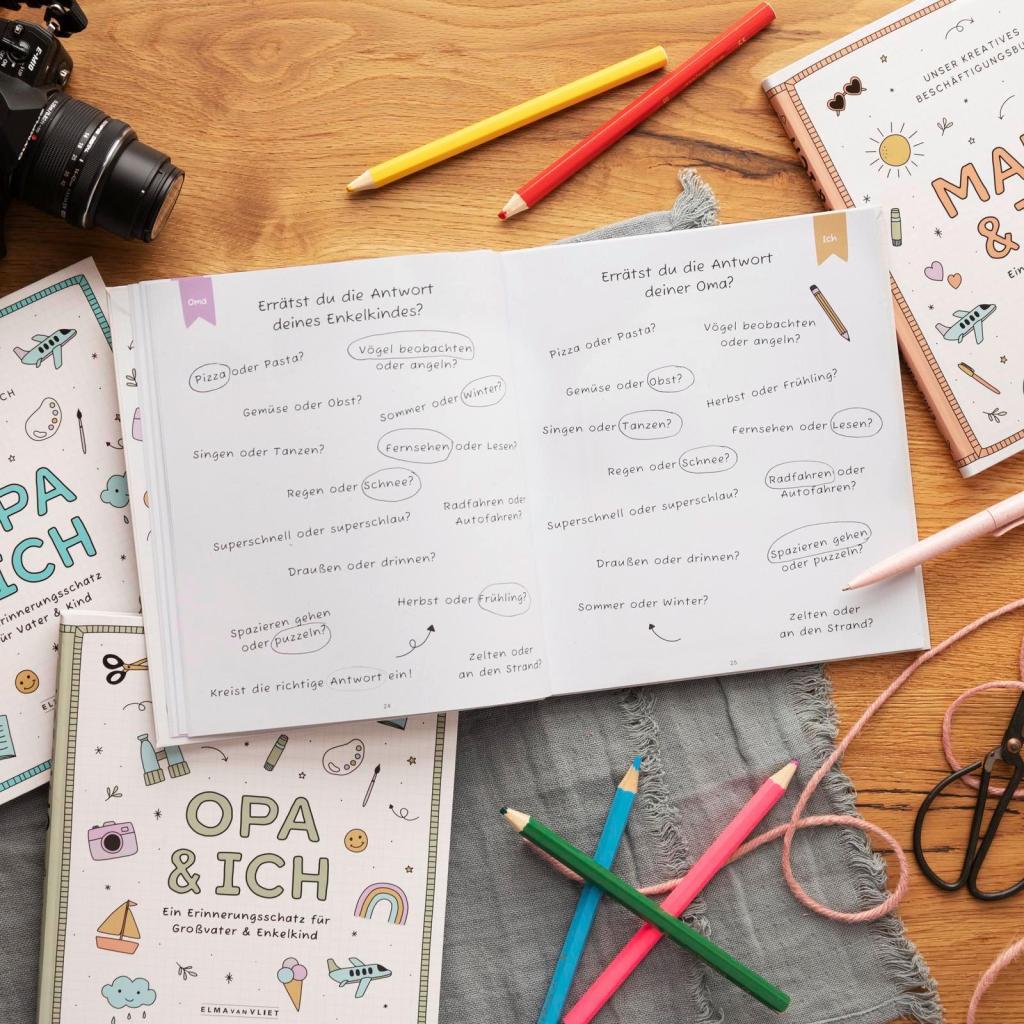 Oma
Errätst du die Antwort
deines Enkelkindes?
Pizza oder Pasta?
Vögel beobachten
oder angeln?
Gemüse oder Obst?
Sommer oder Winter?
Singen oder Tanzen?
Fernsehen oder Lesen?
Regen oder Schnee?
Radfahren oder
Autofahren?
Superschnell oder superschlau?
Draußen oder drinnen?
Herbst oder Frühling?
Spazieren gehen
oder puzzeln?
Zelten oder
an den Strand?
Kreist die richtige Antwort ein!
24
Ich
Errätst du die Antwort
deiner Oma?
Pizza oder Pasta?
Vögel beobachten
oder angeln?
Gemüse oder Obst?
Herbst oder Frühling?
Singen oder Tanzen?
Fernsehen oder Lesen?
Regen oder Schnee?
Radfahren oder
Autofahren?
Superschnell oder superschlau?
Draußen oder drinnen?
Spazieren gehen
oder puzzeln?
Sommer oder Winter?
Zelten oder
an den Strand?
25
UNSER KREATIVES
BESCHÄFTIGUNGSBU
MA
&
Ein
CH
PA
ICH
rinnerungsschatz
für Vater & Kind
EL
OPA
& ICH
Ein Erinnerungsschatz für
Großvater & Enkelkind
ELMA VAN VLIET